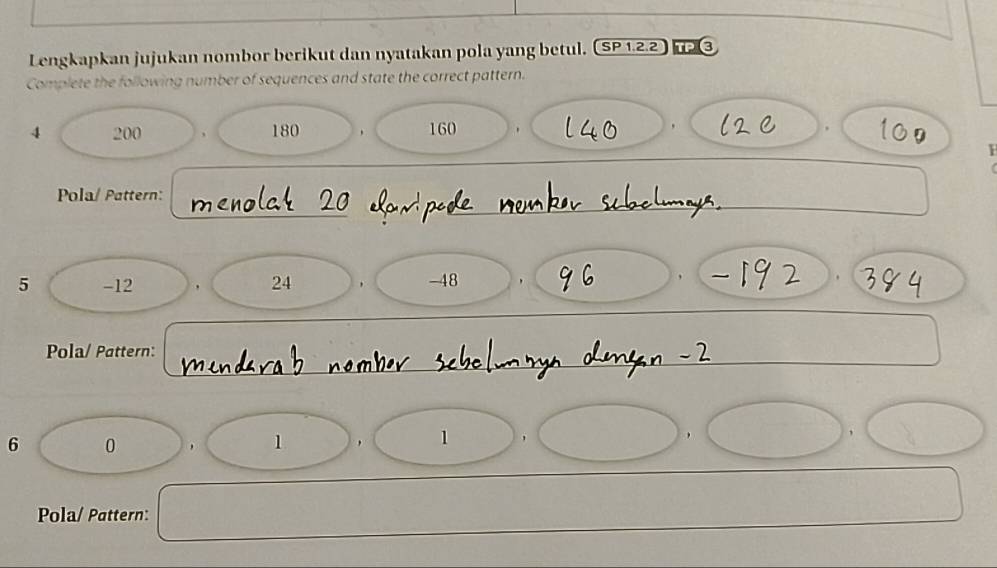 Lengkapkan jujukan nombor berikut dan nyatakan pola yang betul. SP 1.2.2 TP 3
Complete the following number of sequences and state the correct pattern.
4 200 , 180 , 160 , 140 , 120 , 100
Pola/ Pattern: menolak 20 daripada nombor sebelumnya.
5 -12 , 24 , -48 , 96 , -192 , 384
Pola/ Pattern: mendarab nombor sebelumnya dengan -2
6 0 , 1 , 1 , , ,
Pola/ Pattern: